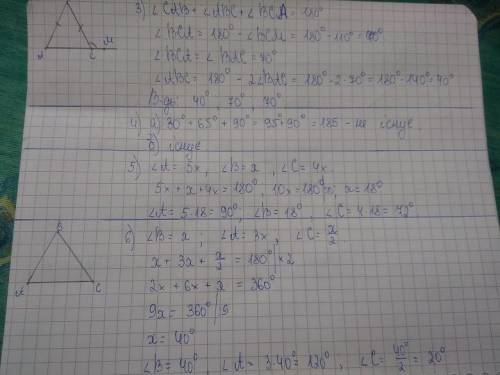 A C M
3) ∠CAB + ∠ABC + ∠BCA = 180°
∠BCA = 180° - ∠BCM = 180° - 110° = 70°
∠BCA = ∠BAC = 70°
∠ABC = 180° - 2∠BAC = 180° - 2·70° = 180° - 140° = 40°
В-дь: 40°, 70°, 70°
4) а) 30° + 65° + 90° = 95° + 90° = 185 - не існує
б) існує
5) ∠A = 5x, ∠B = x, ∠C = 4x
5x + x + 4x = 180°, 10x = 180°, x = 18°
∠A = 5·18 = 90°, ∠B = 18°, ∠C = 4·18 = 72°
B
A C
6) ∠B = x, ∠A = 3x, ∠C = x/2
x + 3x + x/2 = 180° |×2
2x + 6x + x = 360°
9x = 360° |9
x = 40°
∠B = 40°, ∠A = 3·40 = 120°, ∠C = 40°/2 = 20°